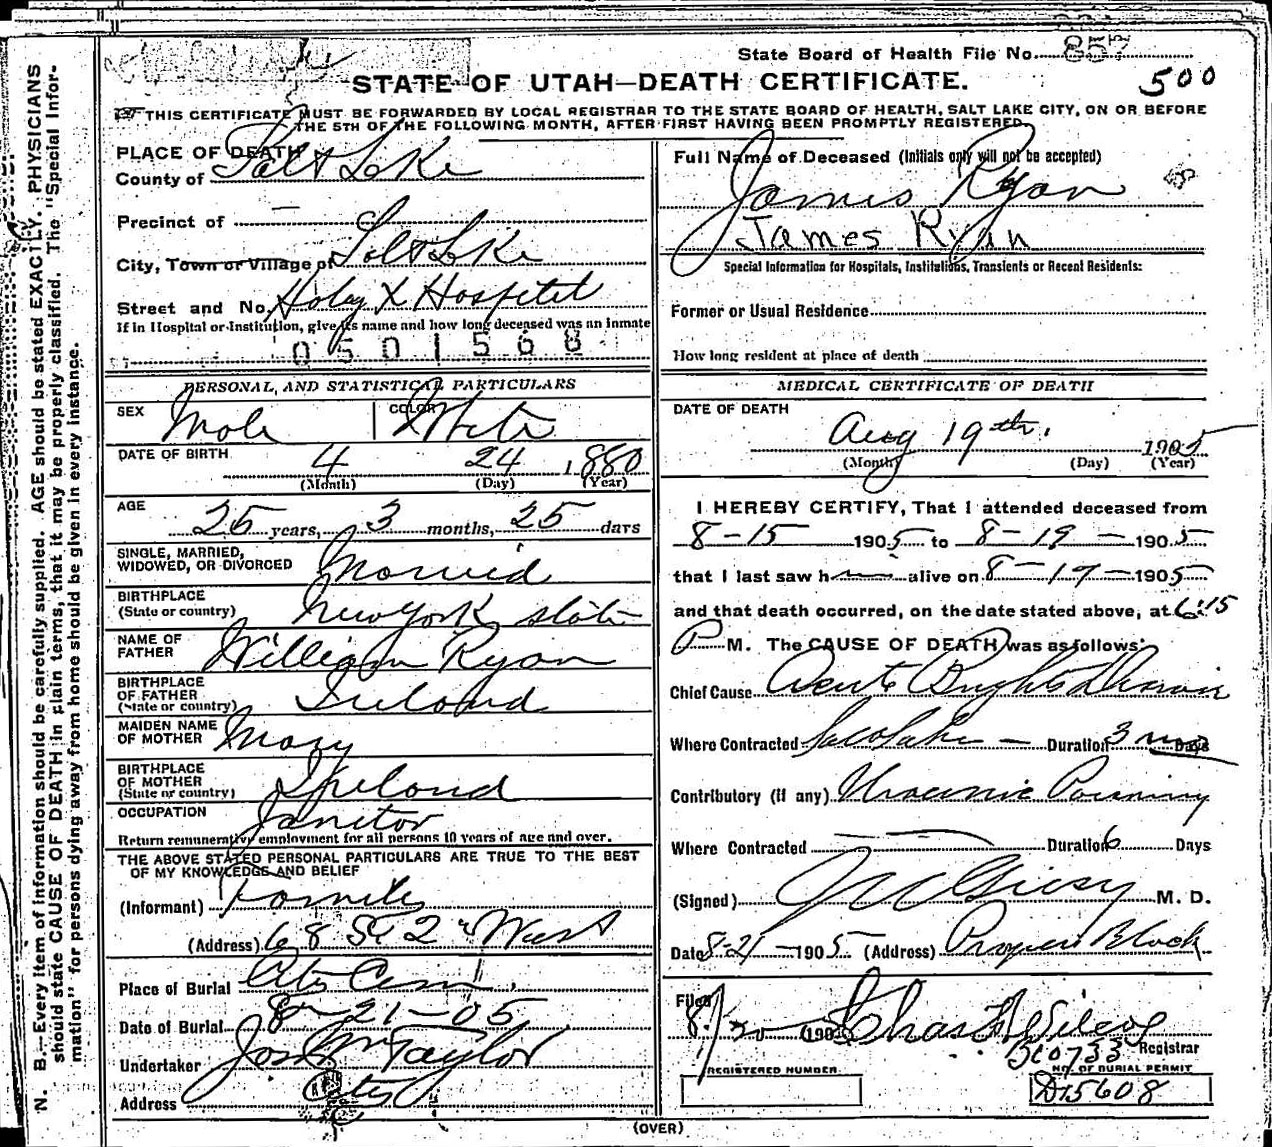 State Board of Health File No. 857
500
STATE OF UTAH—DEATH CERTIFICATE.
THIS CERTIFICATE MUST BE FORWARDED BY LOCAL REGISTRAR TO THE STATE BOARD OF HEALTH, SALT LAKE CITY, ON OR BEFORE
THE 5TH OF THE FOLLOWING MONTH, AFTER FIRST HAVING BEEN PROMPTLY REGISTERED.
PLACE OF DEATH
County of Salt Lake
Precinct of —
City, Town or Village of Salt Lake
Street and No. Holy X Hospital
If in Hospital or Institution, give its name and how long deceased was an inmate
0501568
PERSONAL, AND STATISTICAL PARTICULARS
SEX Male COLOR White
DATE OF BIRTH 4 24 1,880
(Month) (Day) (Year)
AGE 25 years, 3 months, 25 days
SINGLE, MARRIED,
WIDOWED, OR DIVORCED Married
BIRTHPLACE
(State or country) New York State
NAME OF
FATHER William Ryan
BIRTHPLACE
OF FATHER
(State or country) Ireland
MAIDEN NAME
OF MOTHER Mary
BIRTHPLACE
OF MOTHER
(State or country) Ireland
OCCUPATION Janitor
Return remunerative employment for all persons 10 years of age and over.
THE ABOVE STATED PERSONAL PARTICULARS ARE TRUE TO THE BEST
OF MY KNOWLEDGE AND BELIEF
(Informant) Family
(Address) 68 So 2" West
Place of Burial City Cem.
Date of Burial 8-21-05
Undertaker Jos Wm Taylor
Address City
Full Name of Deceased (Initials only will not be accepted)
James Ryan
James Ryan
Special Information for Hospitals, Institutions, Transients or Recent Residents:
Former or Usual Residence
How long resident at place of death
MEDICAL CERTIFICATE OF DEATH
DATE OF DEATH
Aug 19th. 1905
(Month) (Day) (Year)
I HEREBY CERTIFY, That I attended deceased from
8-15 1905 to 8-19-1905
that I last saw h alive on 8-19-1905
and that death occurred, on the date stated above, at 6:15
P M. The CAUSE OF DEATH was as follows:
Chief Cause Acute Brights Disease
Where Contracted Salt Lake — Duration 3 mos Days
Contributory (if any) Uraemic Poisoning
Where Contracted Duration 6 Days
(Signed) M. D.
Date 8-21-1905 (Address) Progress Block
Filed 8/ 190 Chas Wilcox
Registrar
NO. OF BURIAL PERMIT
REGISTERED NUMBER
D15608
(OVER)
N. B.—Every item of information should be carefully supplied. AGE should be stated EXACTLY. PHYSICIANS
should state CAUSE OF DEATH in plain terms, that it may be properly classified. The "Special Infor-
mation" for persons dying away from home should be given in every instance.